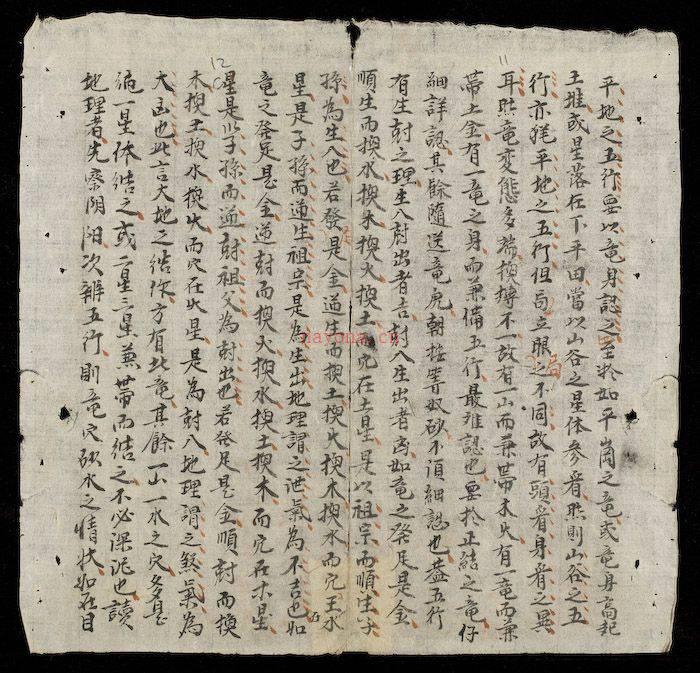 平地之五行要以竜身認之至於如平崗之竜或竜身高起
土堆或星落在下平田當以山谷之星体參看然則山谷之五
行亦猶平地之五行但局立眼之不同故有頭看身看之異
耳然竜变態多端換轉不一故有一山而兼帶木火有一竜而兼
帶土金有一竜之身而兼備五行最难認也要於正結之竜仔
細詳認其餘隨送竜虎朝按等奴砂不須細認也蓋五行
有生尅之理生入尅出者吉尅入生出者凶如竜之發足是金
順生而換水換木換火換土而穴在土星是以祖宗而順生子
孫為生入也若發足是金逆生而換土換火換木換水而穴王水
星是子孫而逆生祖宗是為生出地理謂之泄氣為不吉也如
竜之發足是金逆尅而換火換水換土換木而穴在木星
星是以子孫而逆尅祖父為尅出也若發足是金順尅而換
木換土換水換火而穴在火星是為尅入地理謂之煞氣為
大凶也此言大地之結作方有此竜其餘一山一水之穴多是
編一星体結之或二星三星兼帶而結之不必深泥也讀
地理者先察阴阳次辨五行則竜穴砂水之情状如在目
12
11
dayoma.cn